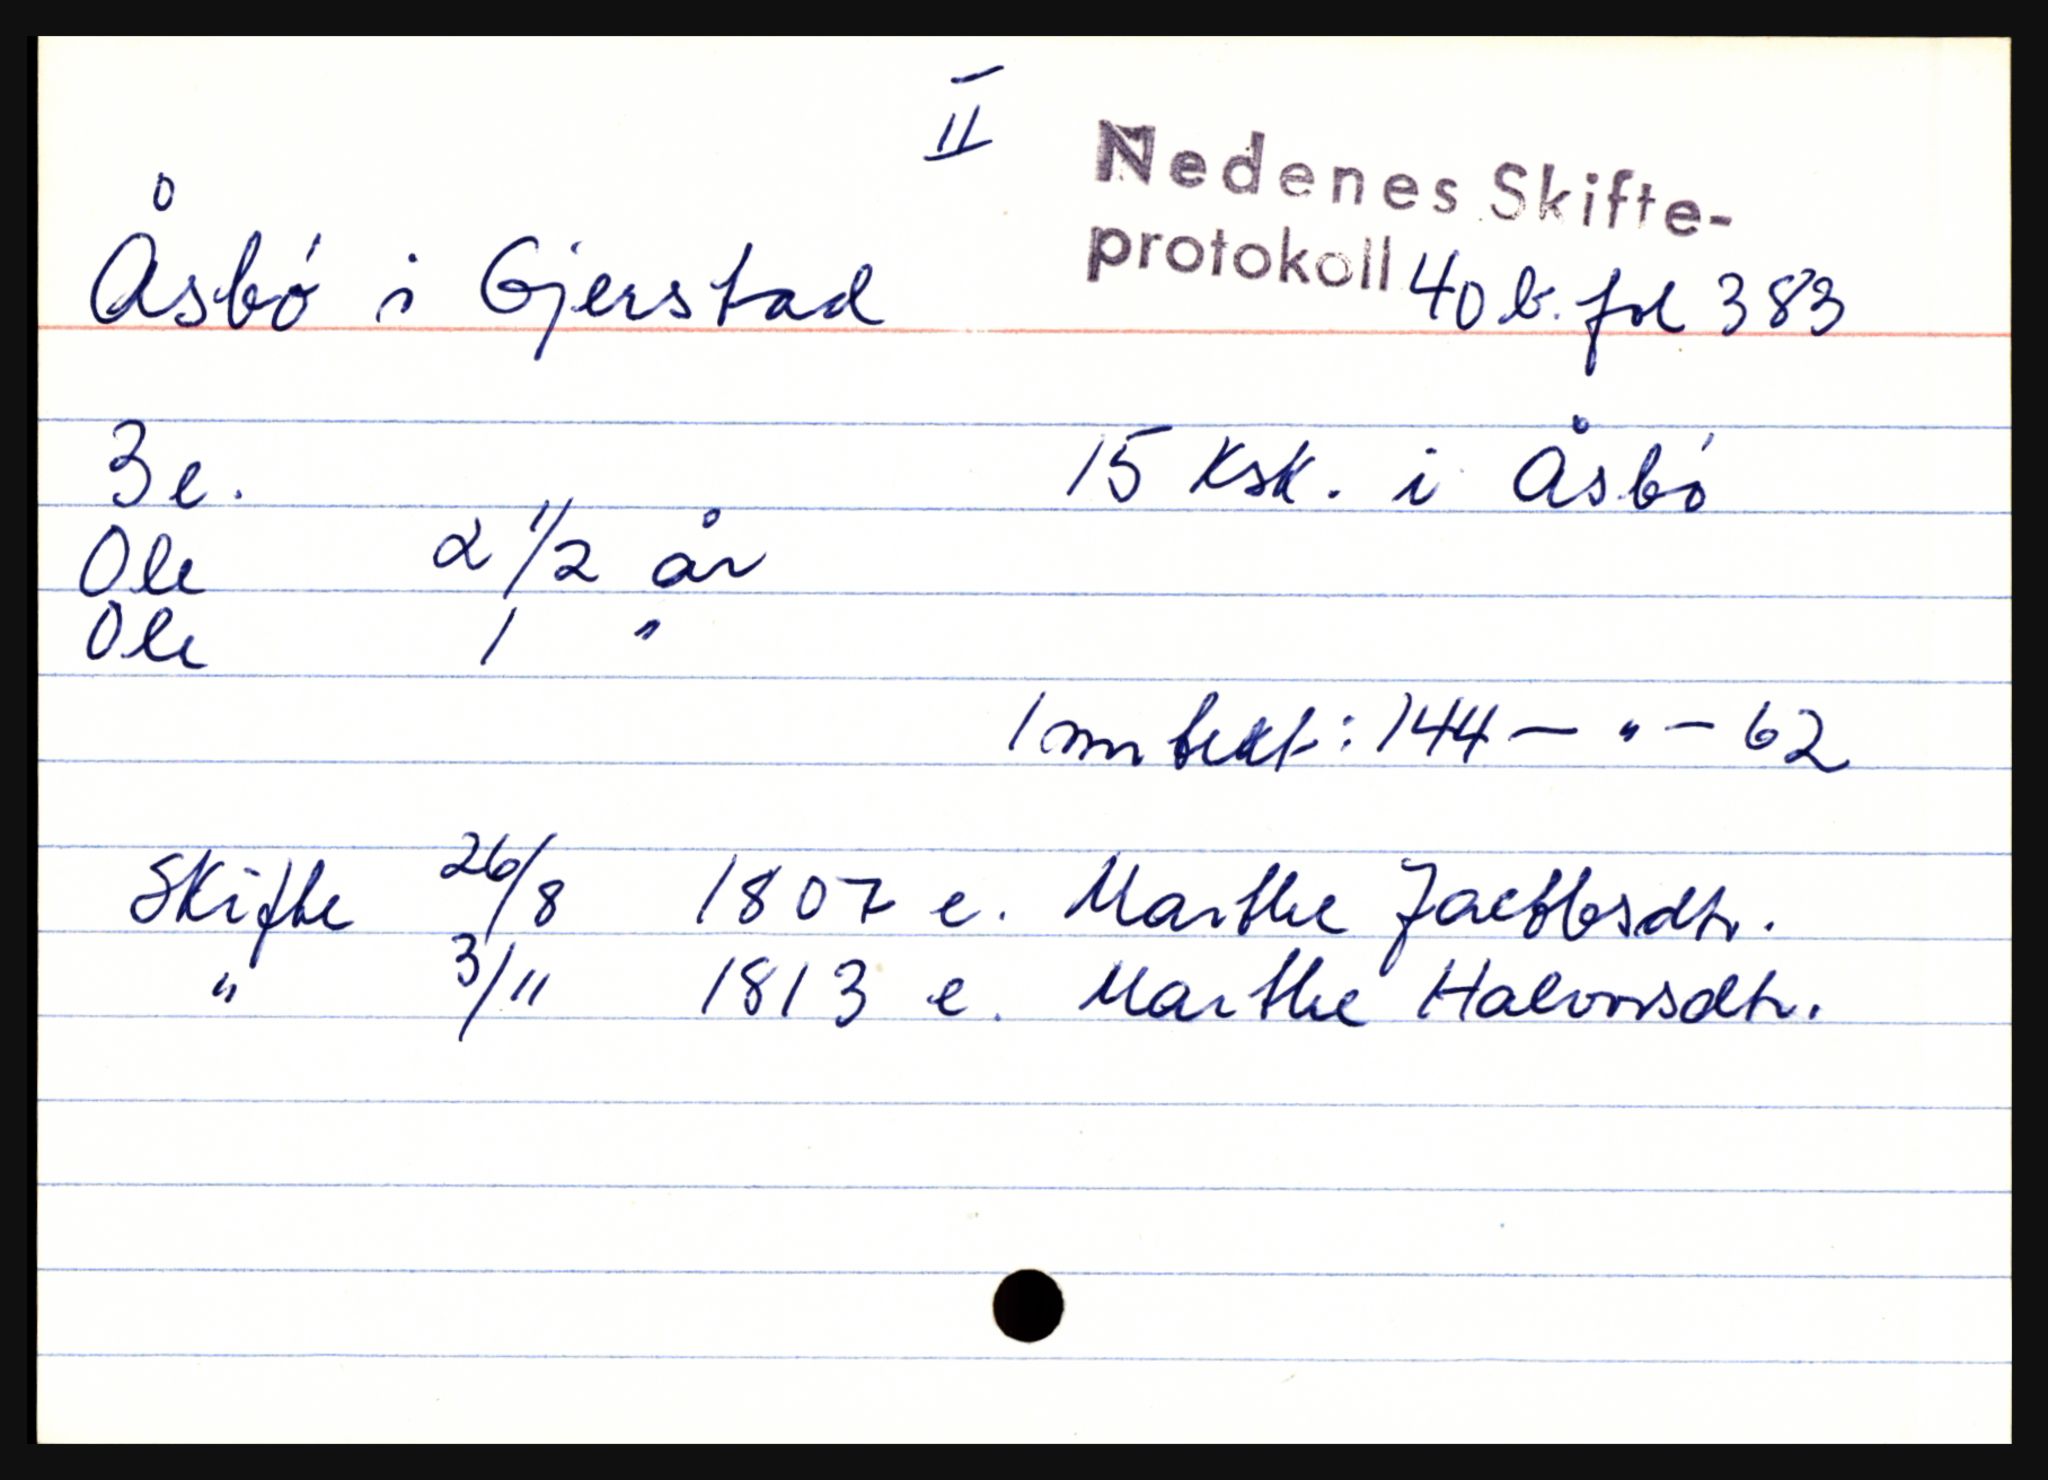 II
Nedenes Skifte-
protokoll 40 b. fol 383
Åsbø i Gjerstad
3 e.
15 Ksk. i Åsbø
Ole 2 1/2 år
Ole 1 "
144 — " — 62
Skifte 26/8 1807 e. Marthe Jacobsdtr.
" 3/11 1813 e. Marthe Halvorsdtr.